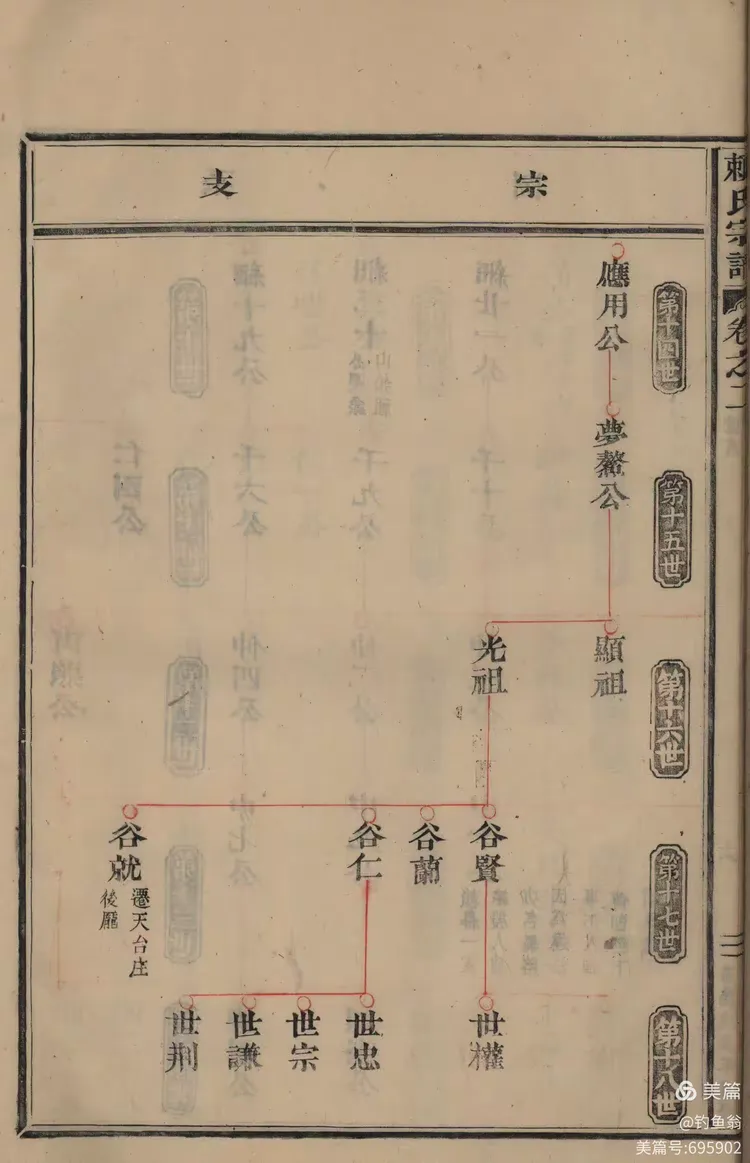 宗支
賴氏宗譜
卷之二
第十四世
應用公
第十五世
夢鰲公
第十六世
顯祖
光祖
第十七世
谷賢
谷蘭
谷仁
谷就
遷天台庄
後
第十八世
世權
世忠
世宗
世謙
世荆
美篇
@钓鱼翁
美篇号:695902